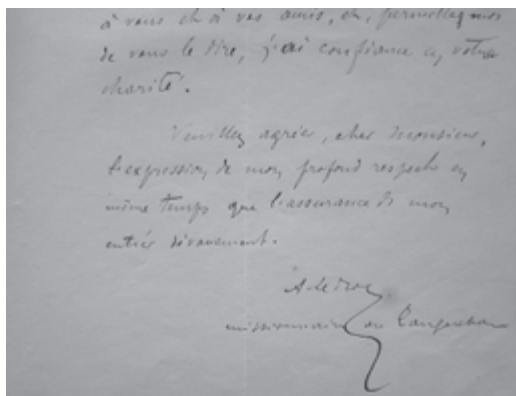 à vous et à vos amis, et, permettez moi
de vous le dire, j'ai confiance en votre
charité.
Veuillez agréer, cher monsieur,
l'expression de mon profond respect en
même temps que l'assurance de mon
entier dévouement.
A. Le Roy
missionnaire au Zanguebar